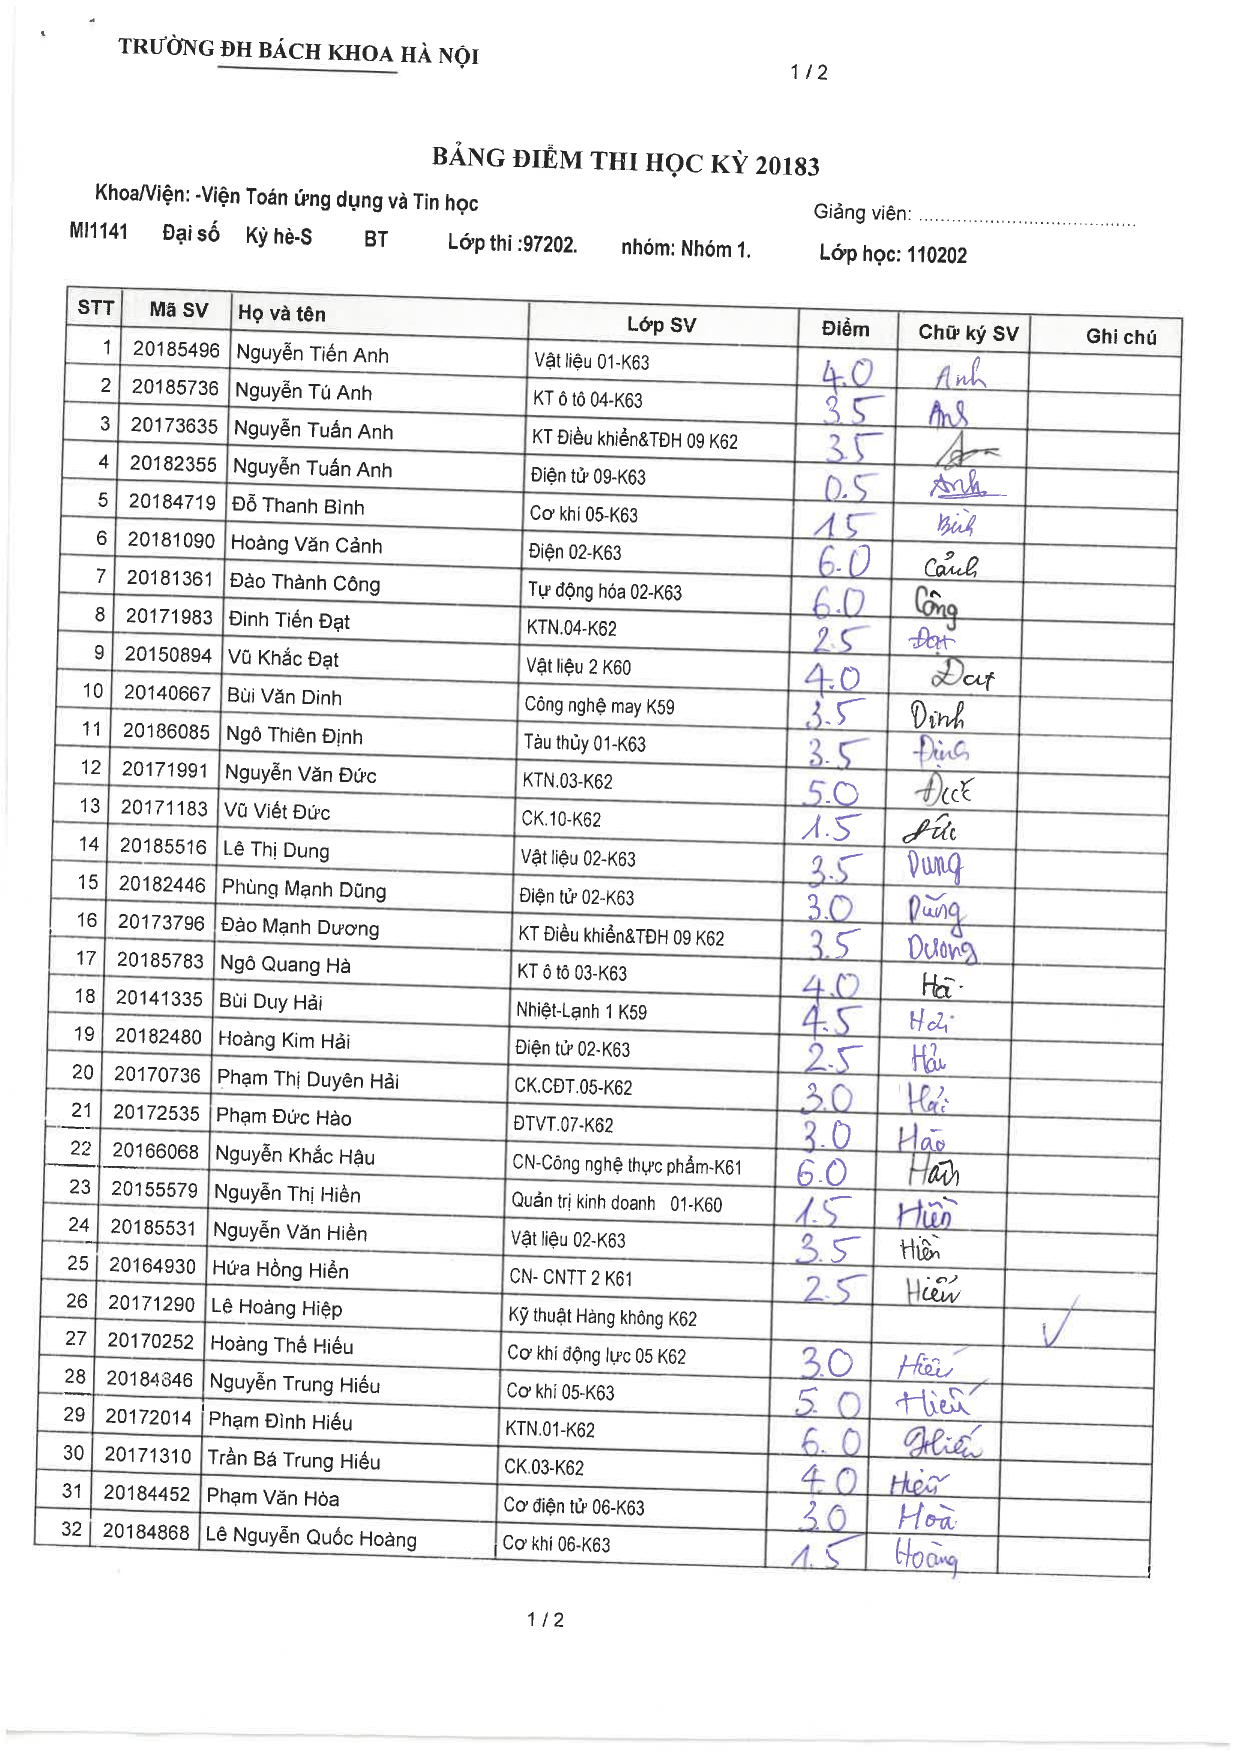 TRƯỜNG ĐH BÁCH KHOA HÀ NỘI
1 / 2
BẢNG ĐIỂM THI HỌC KỲ 20183
Khoa/Viện: -Viện Toán ứng dụng và Tin học Giảng viên: ........................................
MI1141 Đại số Kỳ hè-S BT Lớp thi :97202. nhóm: Nhóm 1. Lớp học: 110202
STT Mã SV Họ và tên Lớp SV Điểm Chữ ký SV Ghi chú
1 20185496 Nguyễn Tiến Anh Vật liệu 01-K63 4.0 Anh
2 20185736 Nguyễn Tú Anh KT ô tô 04-K63 3.5 Anh
3 20173635 Nguyễn Tuấn Anh KT Điều khiển&TĐH 09 K62 3.5
4 20182355 Nguyễn Tuấn Anh Điện tử 09-K63 0.5 Anh
5 20184719 Đỗ Thanh Bình Cơ khí 05-K63 1.5 Bình
6 20181090 Hoàng Văn Cảnh Điện 02-K63 6.0 Cảnh
7 20181361 Đào Thành Công Tự động hóa 02-K63 6.0 Công
8 20171983 Đinh Tiến Đạt KTN.04-K62 2.5 Đạt
9 20150894 Vũ Khắc Đạt Vật liệu 2 K60 4.0 Đạt
10 20140667 Bùi Văn Dinh Công nghệ may K59 3.5 Dinh
11 20186085 Ngô Thiên Định Tàu thủy 01-K63 3.5 Định
12 20171991 Nguyễn Văn Đức KTN.03-K62 5.0 Đức
13 20171183 Vũ Viết Đức CK.10-K62 1.5 Đức
14 20185516 Lê Thị Dung Vật liệu 02-K63 3.5 Dung
15 20182446 Phùng Mạnh Dũng Điện tử 02-K63 3.0 Dũng
16 20173796 Đào Mạnh Dương KT Điều khiển&TĐH 09 K62 3.5 Dương
17 20185783 Ngô Quang Hà KT ô tô 03-K63 4.0 Hà
18 20141335 Bùi Duy Hải Nhiệt-Lạnh 1 K59 4.5 Hải
19 20182480 Hoàng Kim Hải Điện tử 02-K63 2.5 Hải
20 20170736 Phạm Thị Duyên Hải CK.CĐT.05-K62 3.0 Hải
21 20172535 Phạm Đức Hào ĐTVT.07-K62 3.0 Hào
22 20166068 Nguyễn Khắc Hậu CN-Công nghệ thực phẩm-K61 6.0 Hậu
23 20155579 Nguyễn Thị Hiền Quản trị kinh doanh 01-K60 1.5 Hiền
24 20185531 Nguyễn Văn Hiền Vật liệu 02-K63 3.5 Hiền
25 20164930 Hứa Hồng Hiển CN- CNTT 2 K61 2.5 Hiển
26 20171290 Lê Hoàng Hiệp Kỹ thuật Hàng không K62 ✓
27 20170252 Hoàng Thế Hiếu Cơ khí động lực 05 K62 3.0 Hiếu
28 20184846 Nguyễn Trung Hiếu Cơ khí 05-K63 5.0 Hiếu
29 20172014 Phạm Đình Hiếu KTN.01-K62 6.0 Hiếu
30 20171310 Trần Bá Trung Hiếu CK.03-K62 4.0 Hiếu
31 20184452 Phạm Văn Hòa Cơ điện tử 06-K63 3.0 Hoà
32 20184868 Lê Nguyễn Quốc Hoàng Cơ khí 06-K63 1.5 Hoàng
1 / 2